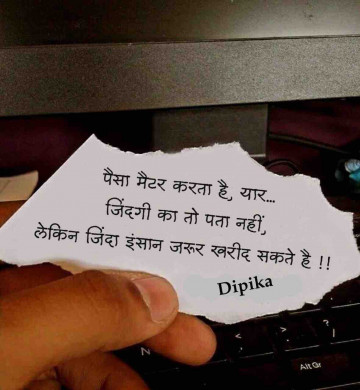 पैसा मैटर करता है, यार...
जिंदगी का तो पता नहीं,
लेकिन जिंदा इंसान जरूर खरीद सकते है !!
Dipika
Alt Gr